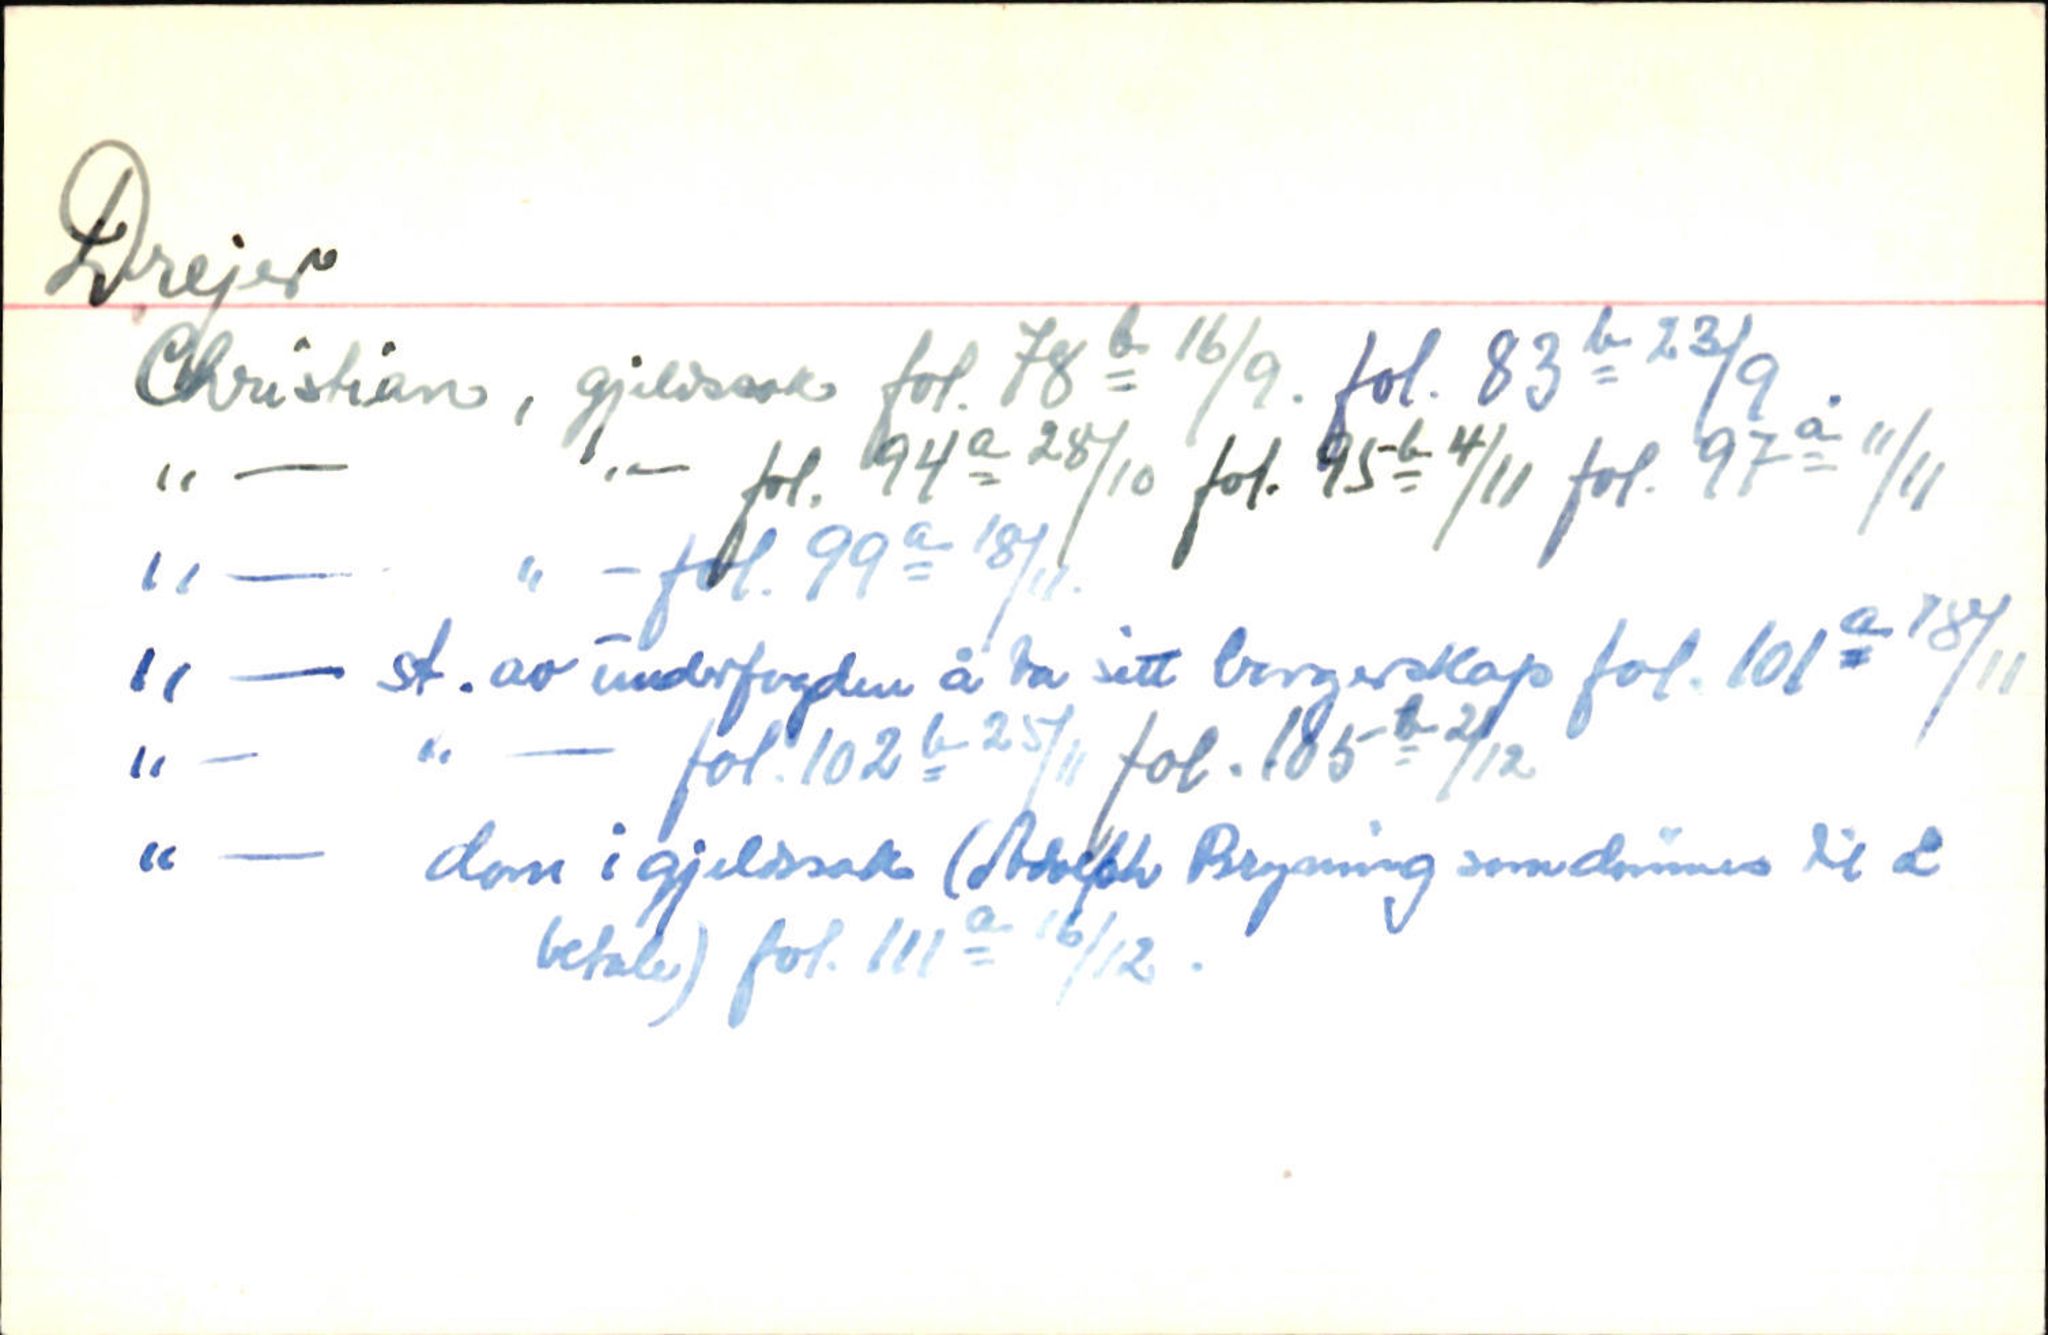 Drejer
Christian, gjeldssak fol. 78 b 16/9. fol. 83 b 23/9.
" — " — fol. 94 a 28/10 fol. 95 b 4/11 fol. 97 a 11/11
" — " — fol. 99 a 18/11.
" — st. av underfogden å ta sitt borgerskap fol. 101 a 18/11
" — " — fol. 102 b 25/11 fol. 105 b 2/12
" — dom i gjeldssak (Adolph Bryning som dømmes til å
betale) fol. 111 a 16/12.